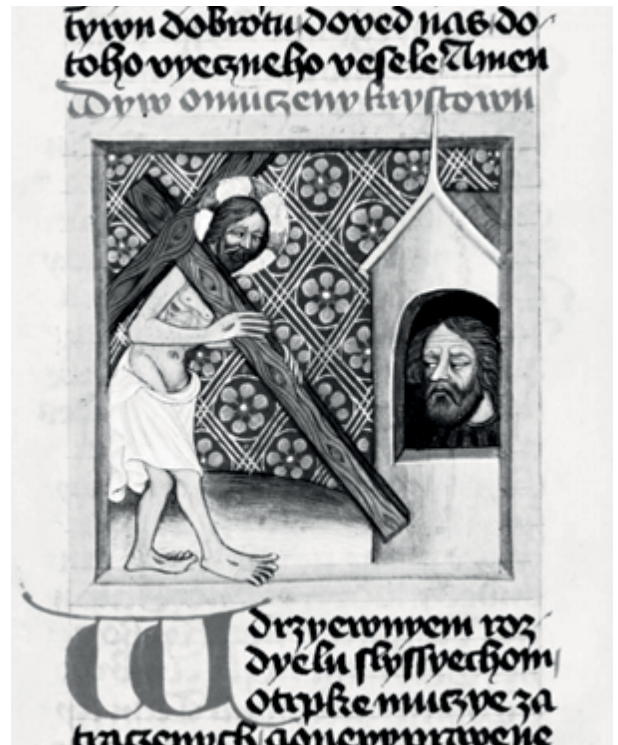 dobrotu doved nas do
toho vyeczneho veſele Amen
omuczeny kryſtowu
W drzyewnyem roz
dyelu ſlyſſyechom
otrpke muczye za
traczenych